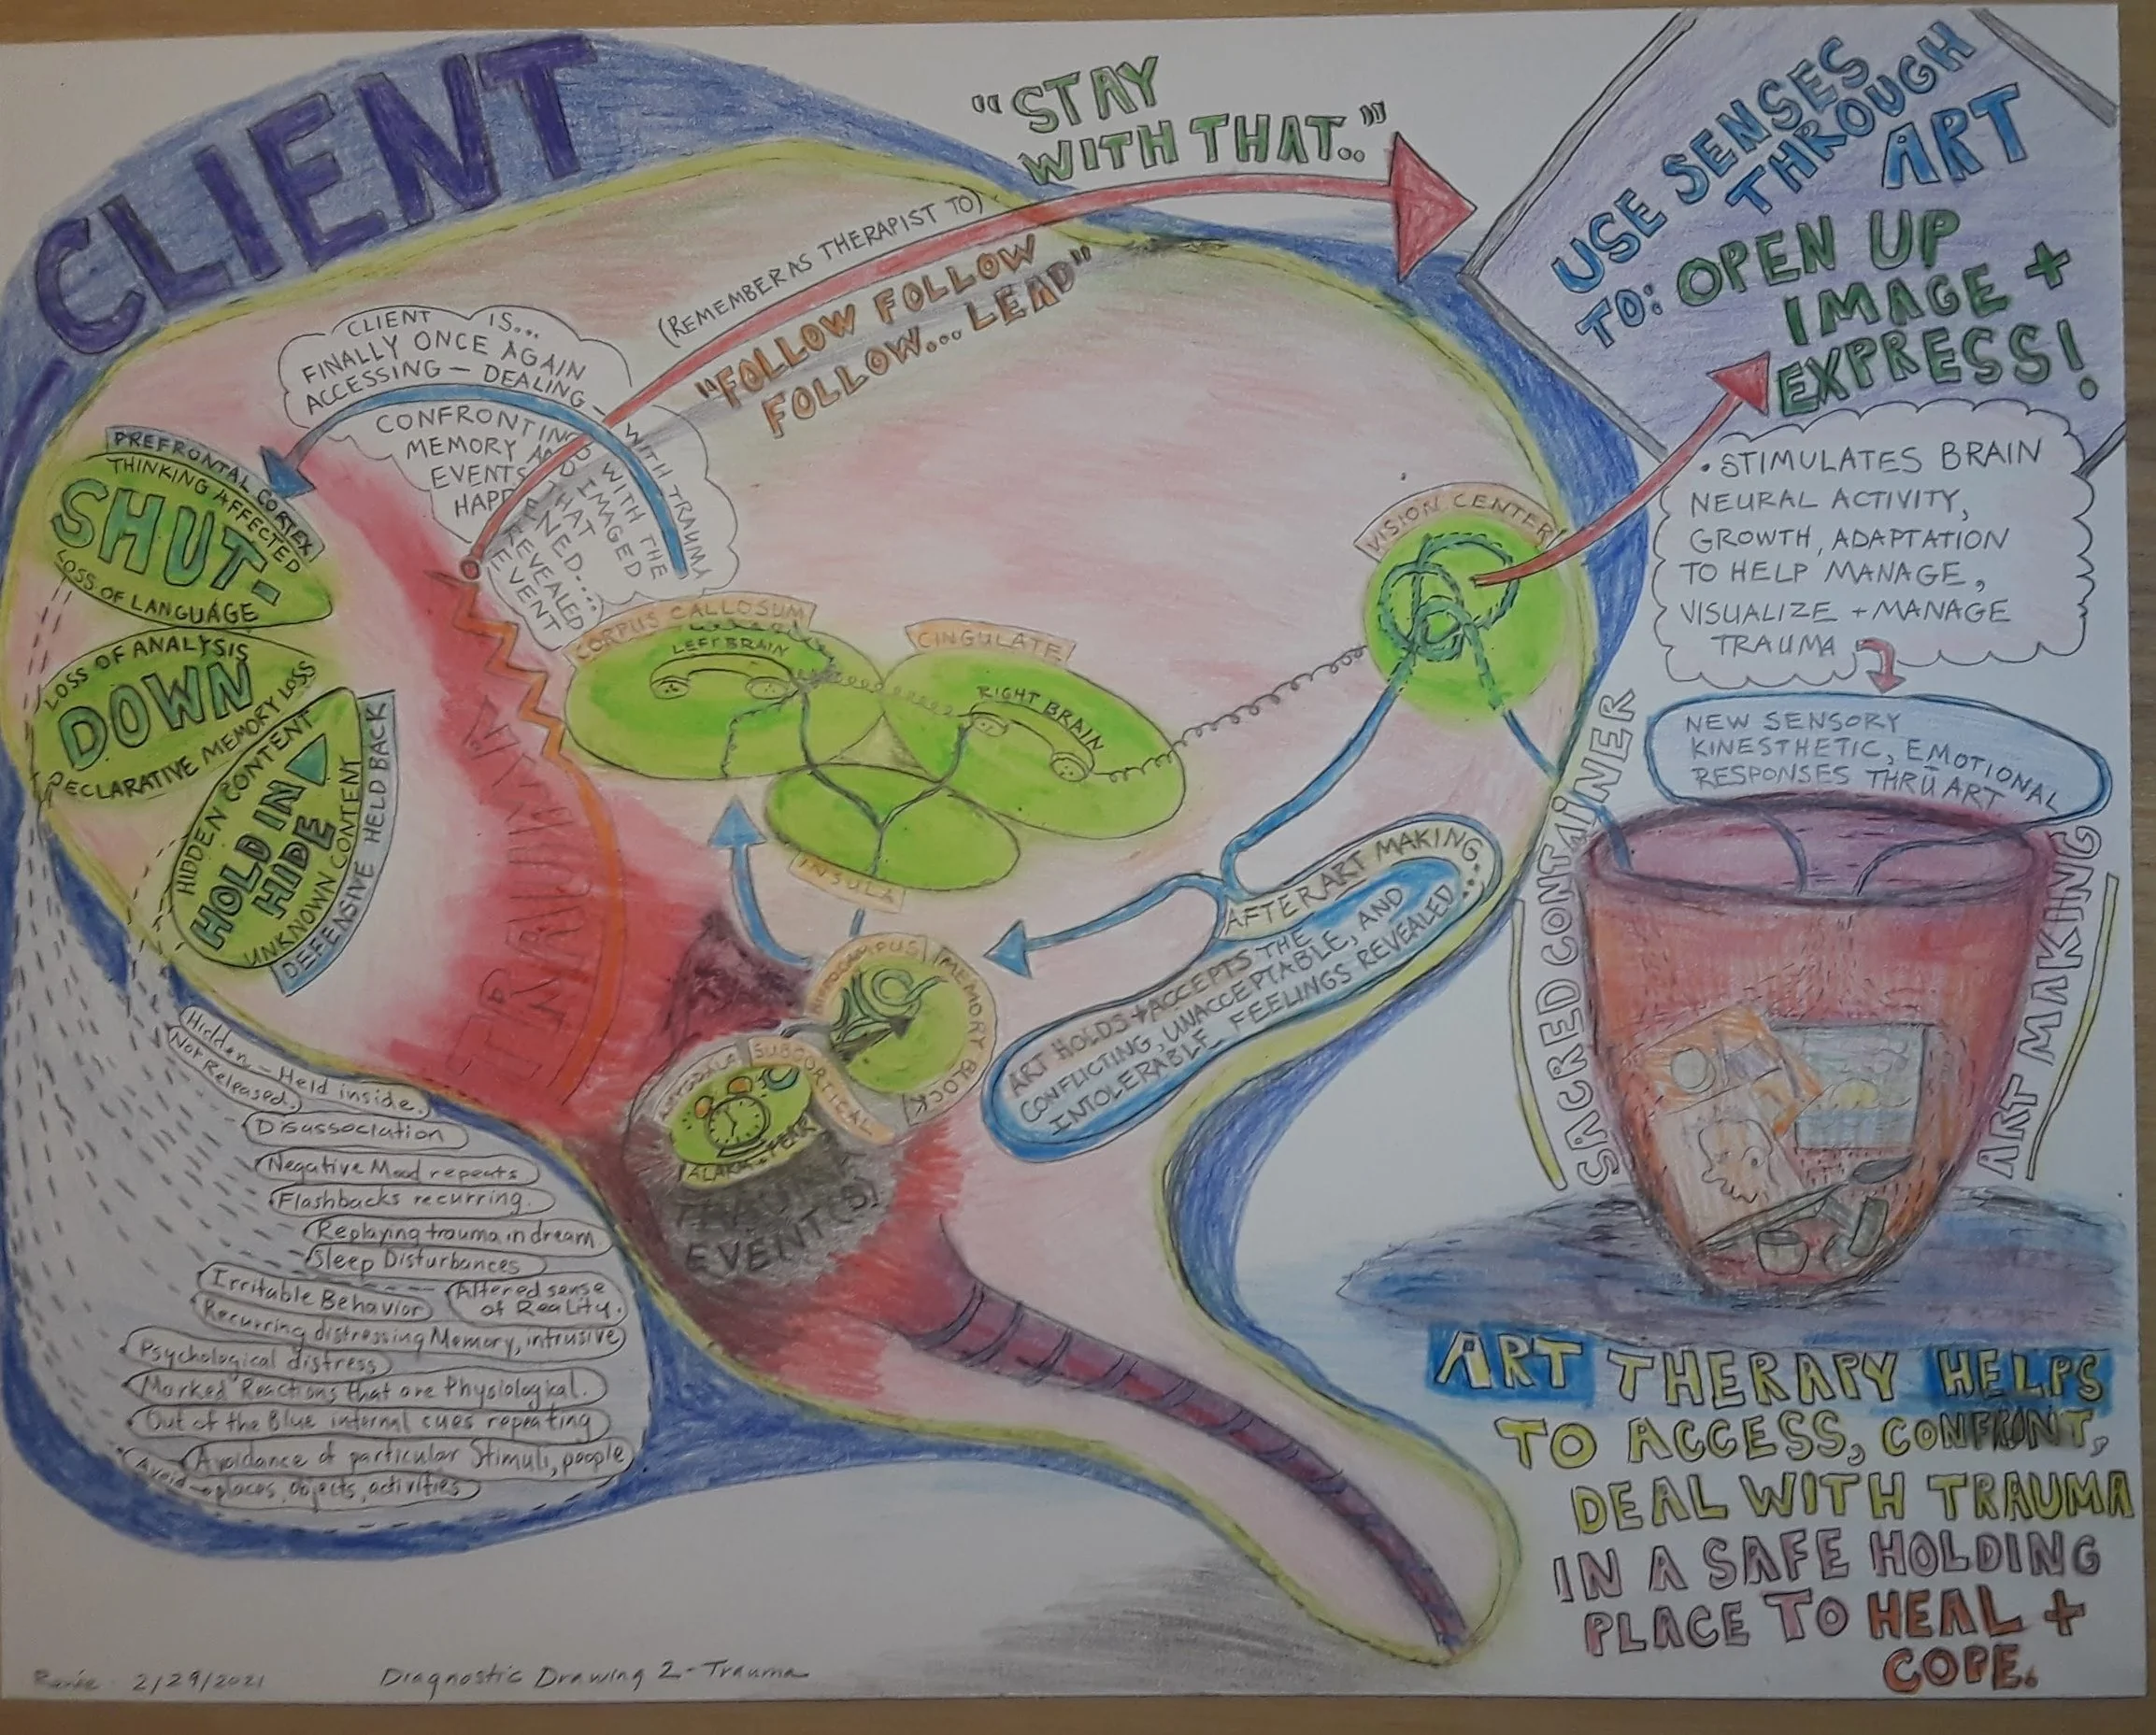 CLIENT
"STAY
WITH THAT.."
(REMEMBER AS THERAPIST TO)
"FOLLOW FOLLOW
FOLLOW... LEAD"
USE SENSES
THROUGH
ART
TO: OPEN UP
IMAGE +
EXPRESS!
CLIENT IS...
FINALLY ONCE AGAIN
ACCESSING — DEALING —
WITH TRAUMA
CONFRONTING WITH THE
MEMORY AND IMAGED
EVENTS THAT REVEALED
HAPPENED....
REVEALED
EVENT
PREFRONTAL CORTEX
THINKING AFFECTED
SHUT-
LOSS OF LANGUAGE
LOSS OF ANALYSIS
DOWN
DECLARATIVE MEMORY LOSS
HIDDEN CONTENT
HOLD IN
HIDE
UNKNOWN CONTENT
DEFENSIVE HELD BACK
TRAUMA
CORPUS CALLOSUM
LEFT BRAIN
CINGULATE
RIGHT BRAIN
INSULA
VISION CENTER
• STIMULATES BRAIN
NEURAL ACTIVITY,
GROWTH, ADAPTATION
TO HELP MANAGE,
VISUALIZE + MANAGE
TRAUMA
NEW SENSORY
KINESTHETIC, EMOTIONAL
RESPONSES THRU ART
SACRED CONTAINER
ART MAKING
AFTER ART MAKING
ART HOLDS + ACCEPTS THE
CONFLICTING, UNACCEPTABLE, AND
INTOLERABLE FEELINGS REVEALED....
HIPPOCAMPUS
(MEMORY BLOCK)
AMYGDALA
SUBCORTICAL
ALARM. FEAR
TRAUMA
EVENT(S)!
Hidden – Held inside.
Not Released.
Disassociation
Negative Mood repeats
Flashbacks recurring.
Replaying trauma in dream
Sleep Disturbances
Irritable Behavior
Altered sense
of Reality.
Recurring distressing Memory, intrusive
Psychological distress
Marked Reactions that are Physiological.
Out of the Blue internal cues repeating
Avoidance of particular Stimuli, people
Avoid places, objects, activities
ART THERAPY HELPS
TO ACCESS, CONFRONT,
DEAL WITH TRAUMA
IN A SAFE HOLDING
PLACE TO HEAL +
COPE.
2/29/2021
Diagnostic Drawing 2 - Trauma